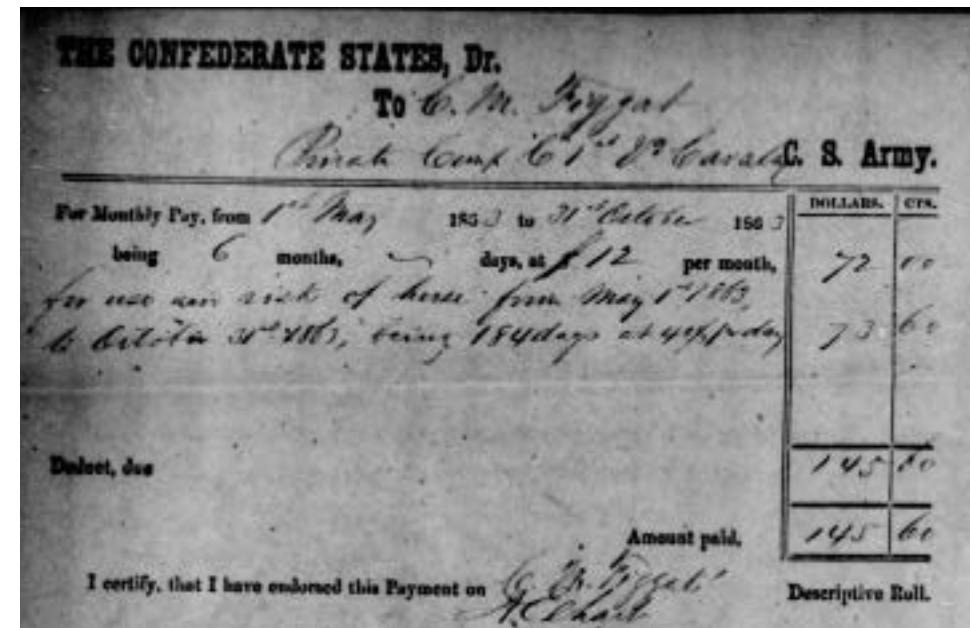 THE CONFEDERATE STATES, Dr.
To C. M. Figgat
Private Comp "C" 1st Va Cavalry C. S. Army.
DOLLARS. CTS.
For Monthly Pay, from 1st May 1863 to 31st October 1863
being 6 months, days, at $12 per month, 72 00
for use and risk of horse from May 1st 1863,
to October 31st 1863, being 184 days at 40¢ pr day 73 60
Deduct, due 145 60
Amount paid, 145 60
I certify, that I have endorsed this Payment on C. M. Figgat's Descriptive Roll.